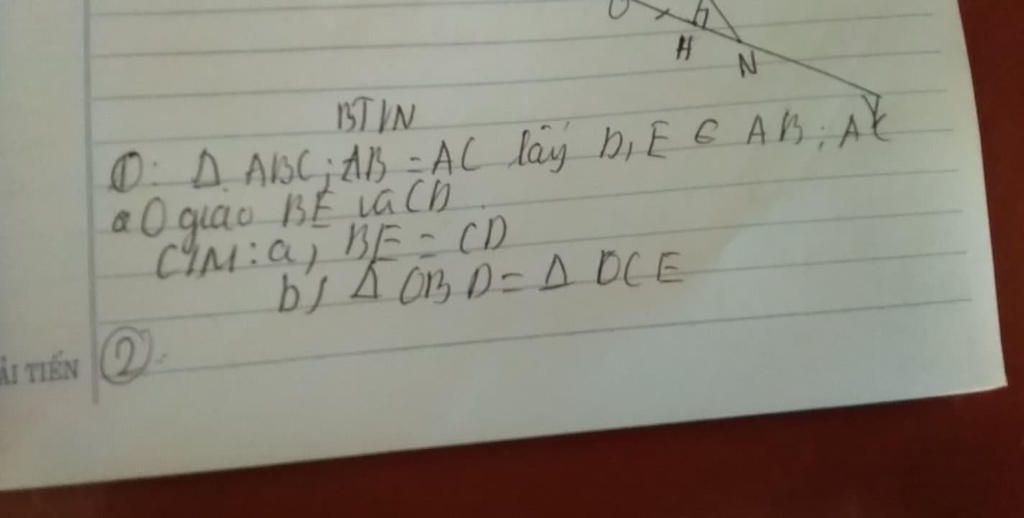 O
H
N
BTVN
①: Δ ABC; AB = AC lấy D, E ∈ AB; AC
O giao BE và CD
C/M: a, BE = CD
b, Δ OBD = Δ OCE
ẢI TIẾN
②